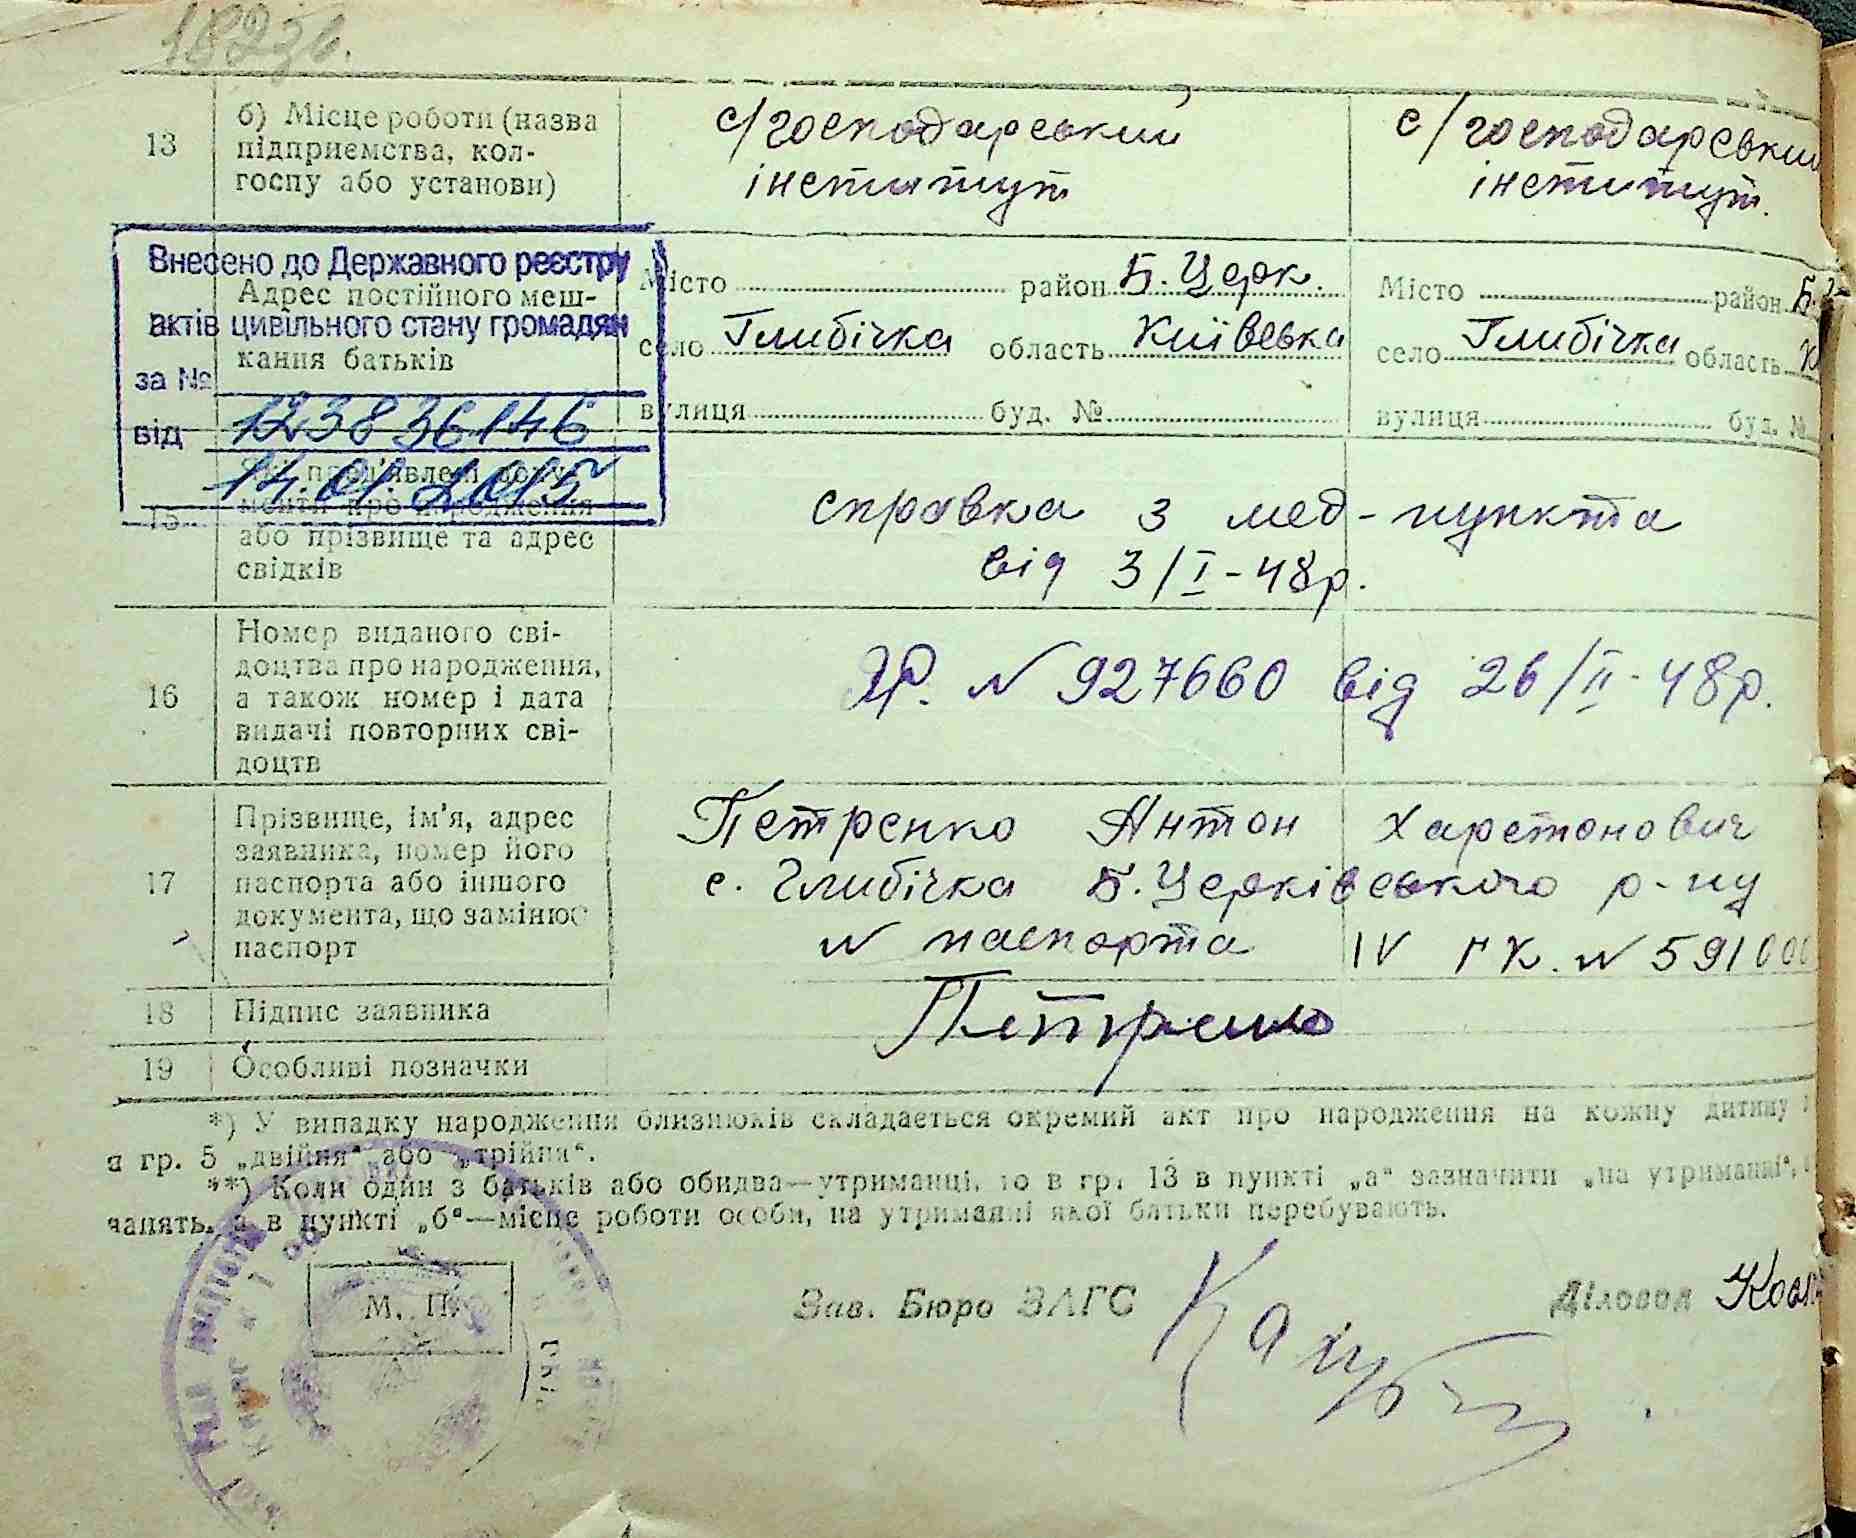 13 б) Місце роботи (назва підприємства, кол-госпу або установи)
с/господарський
інститут
с/господарський
інститут.
Внесено до Державного реєстру
актів цивільного стану громадян
за № 123836146
від 14.01.2015
Адрес постійного меш-
кання батьків
Місто район Б. Церк.
село Глибічка область Київська
вулиця буд. №
Місто район Б.
село Глибічка область К
вулиця буд. №
15
або прізвище та адрес
свідків
справка з мед-пункта
від 3/I-48р.
16
Номер виданого сві-
доцтва про народження,
а також номер і дата
видачі повторних сві-
доцтв
ЯР. № 927660 від 26/II-48р.
17
Прізвище, ім'я, адрес
заявника, номер його
паспорта або іншого
документа, що замінює
паспорт
Петренко Антон Харетонович
с. Глибічка Б. Церківського р-ну
№ паспорта IV ГК. № 591000
18 Підпис заявника
Петренко
19 Особливі позначки
*) У випадку народження близнюків складається окремий акт про народження на кожну дитину
гр. 5 „двійня“ або „трійня“.
**) Коли один з батьків або обидва—утриманці, то в гр. 13 в пункті „а“ зазначити „на утриманні“,
а в пункті „б“—місце роботи особи, на утриманні якої батьки перебувають.
М. П.
Зав. Бюро ЗАГС
Діловод